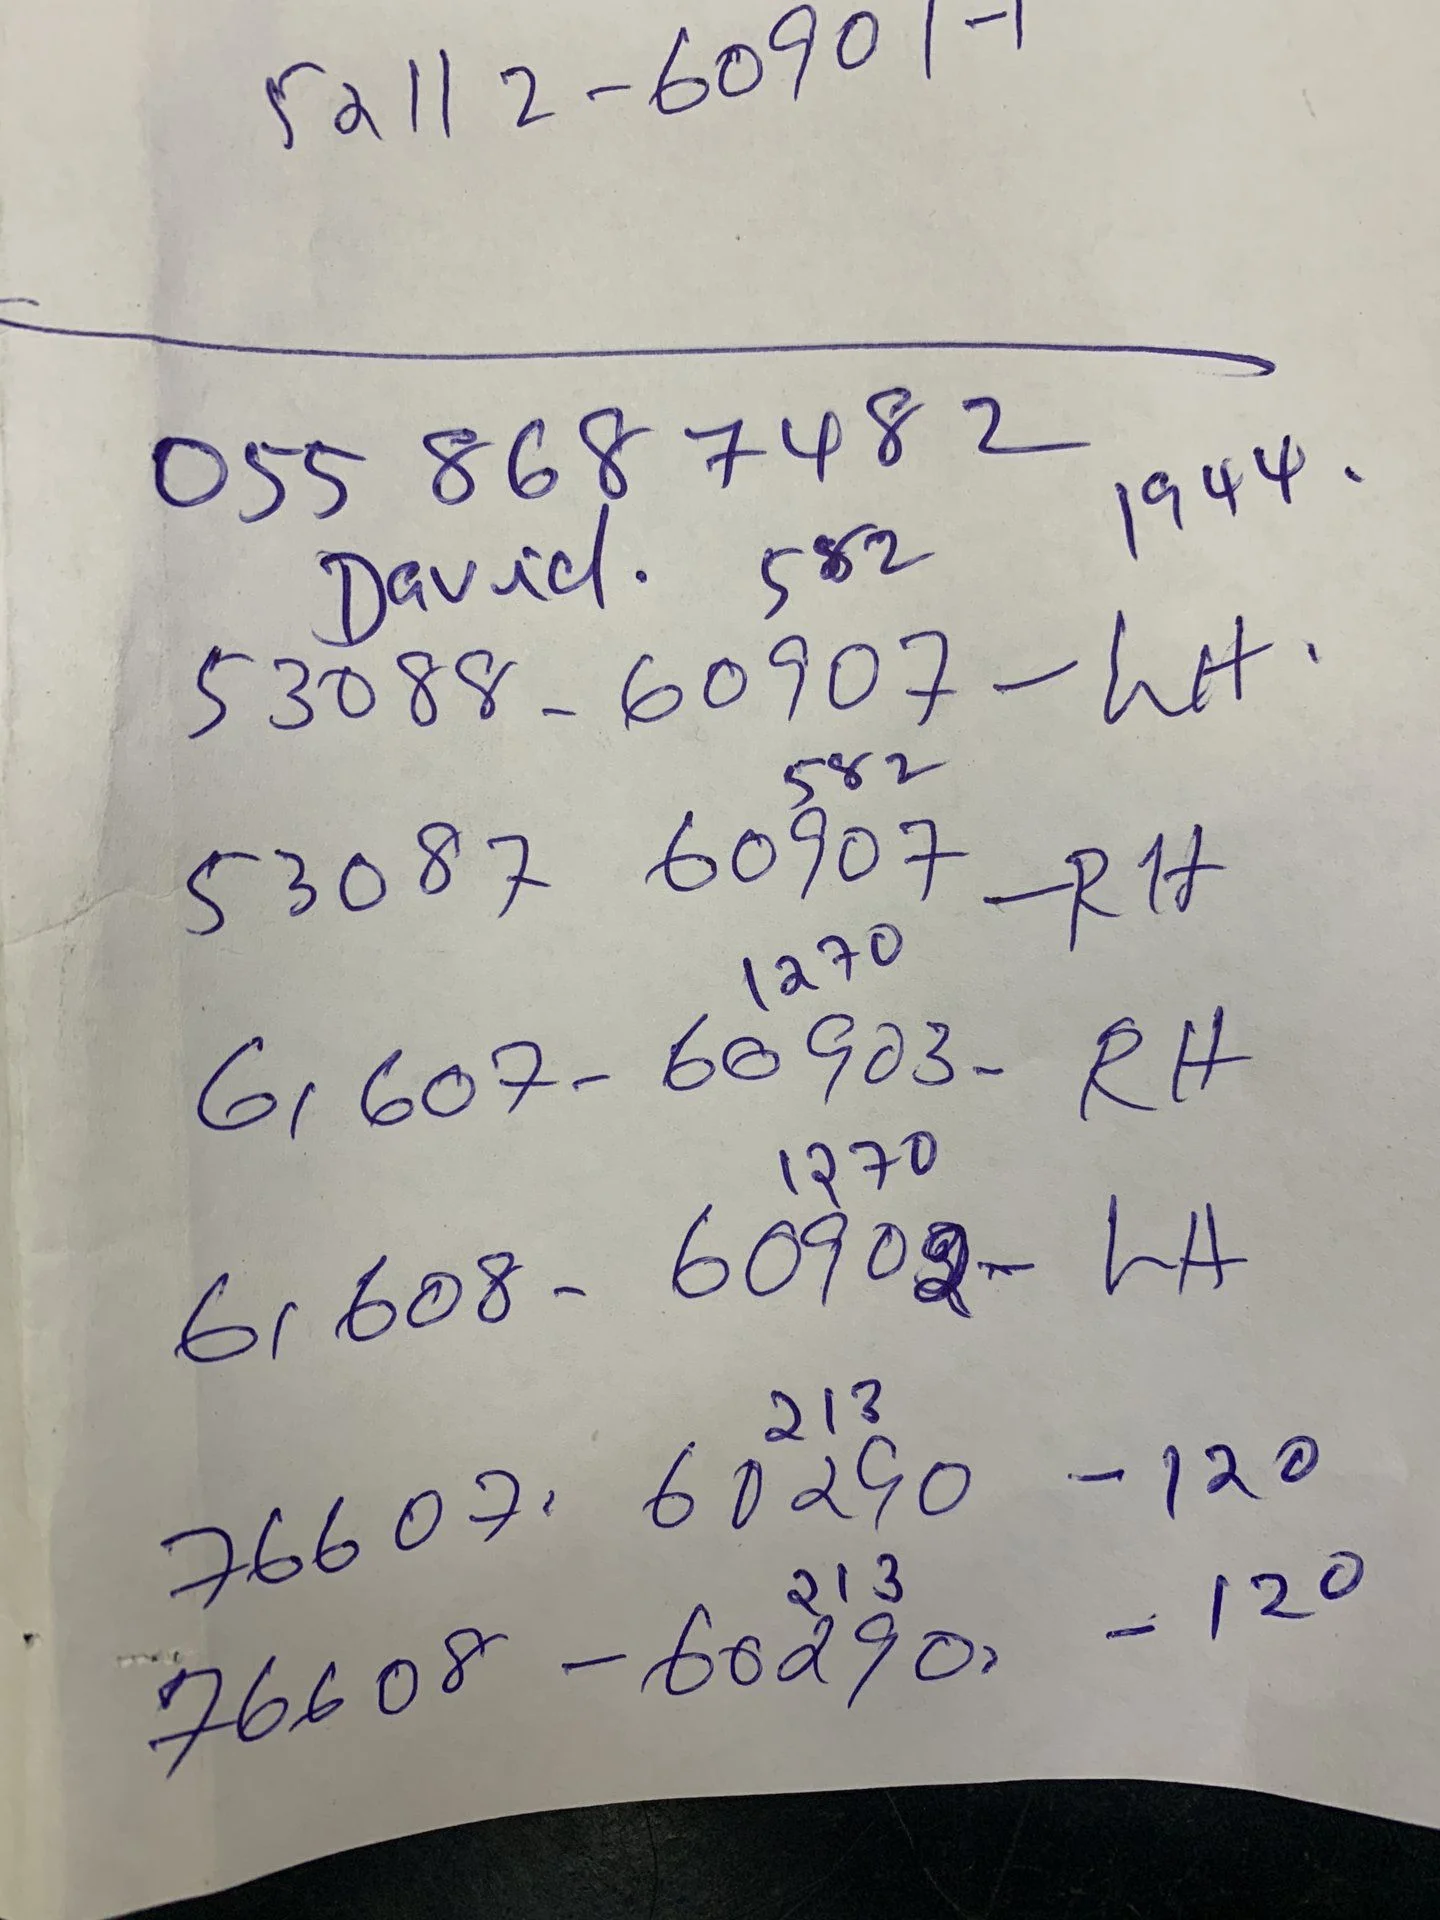 52112-60901-1
055 868 7482
1944.
David. 582
53088-60907-LH.
582
53087 60907-RH
1270
61607-60903-RH
1270
61608-60902-LH
213
76607. 60290 -120
213
76608-60290, -120